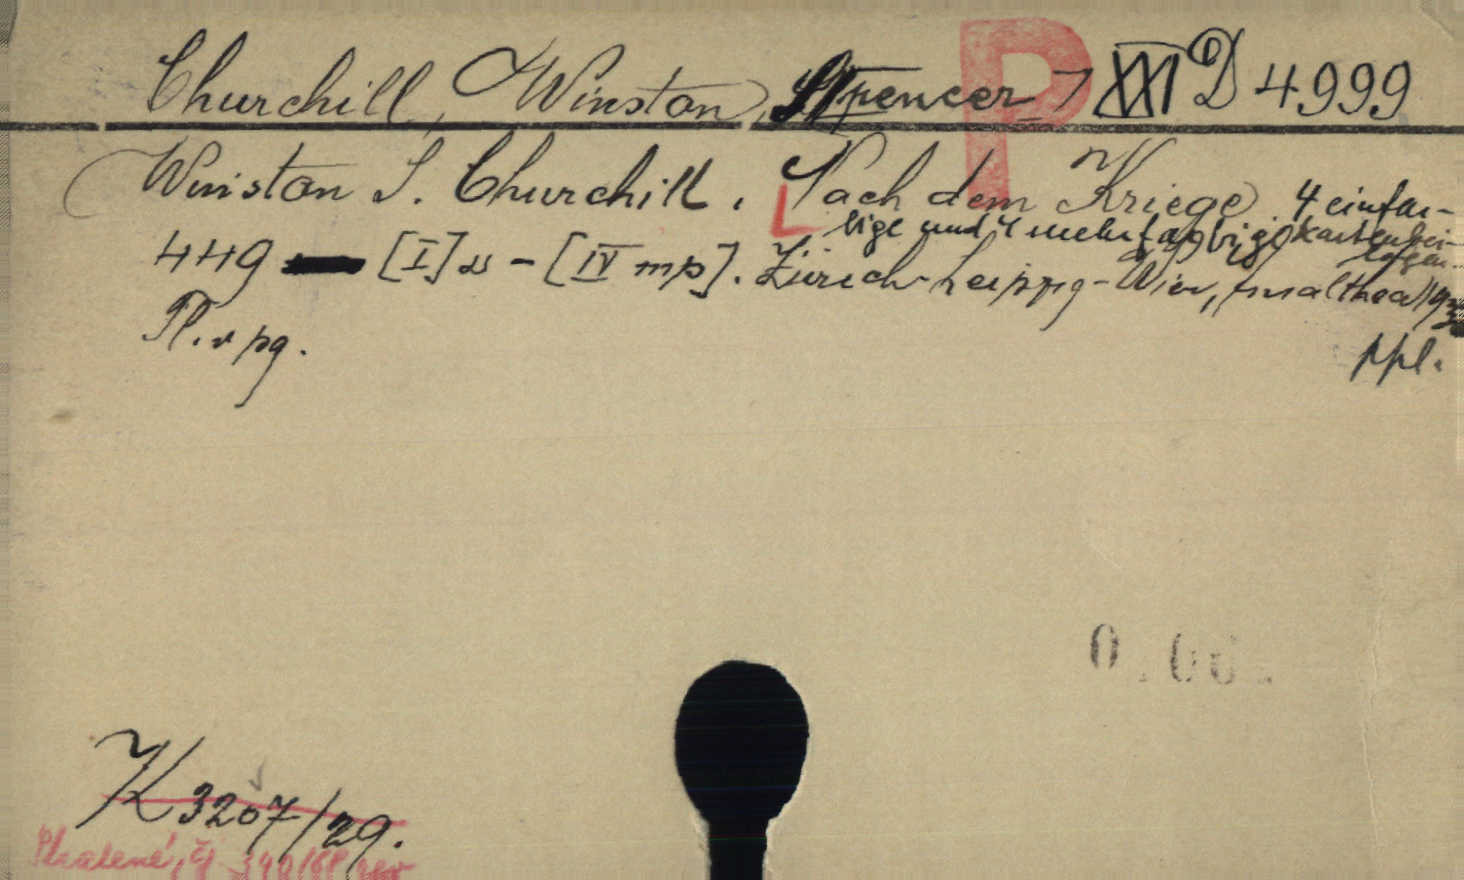 Churchill, Winston, Spencer
P
XXI D 4999
Winston S. Churchill. Nach dem Kriege 4 einfar-
bige und 4 mehrfarbige Kartenbei-
lagen.
449 [I] - [IV mp]. Zürich-Leipzig-Wien, Amalthea
Pl. v pg.
ppl.
K 3207/29.